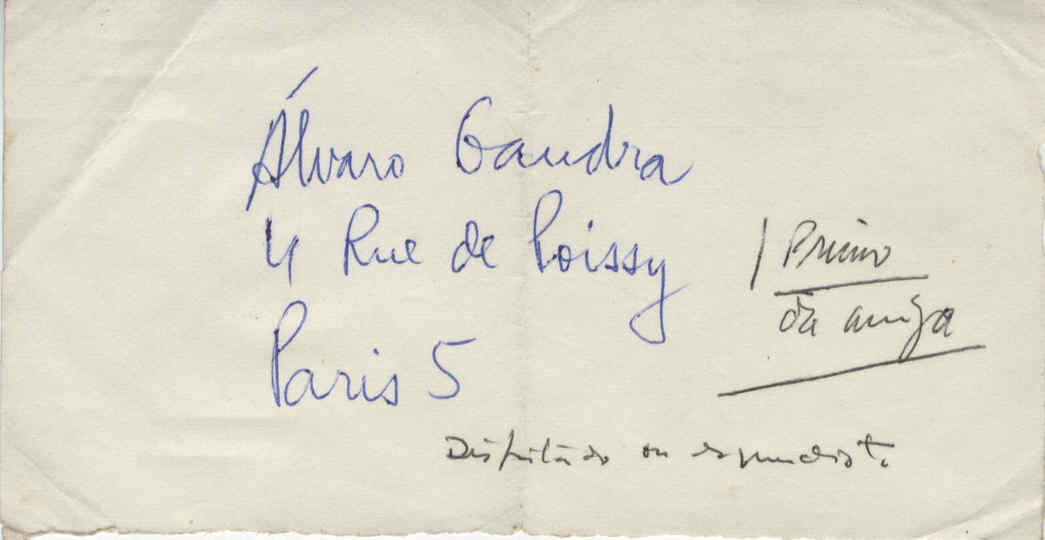 Álvaro Gandra
4 Rue de Poissy
Paris 5
Primo
da amiga
ou